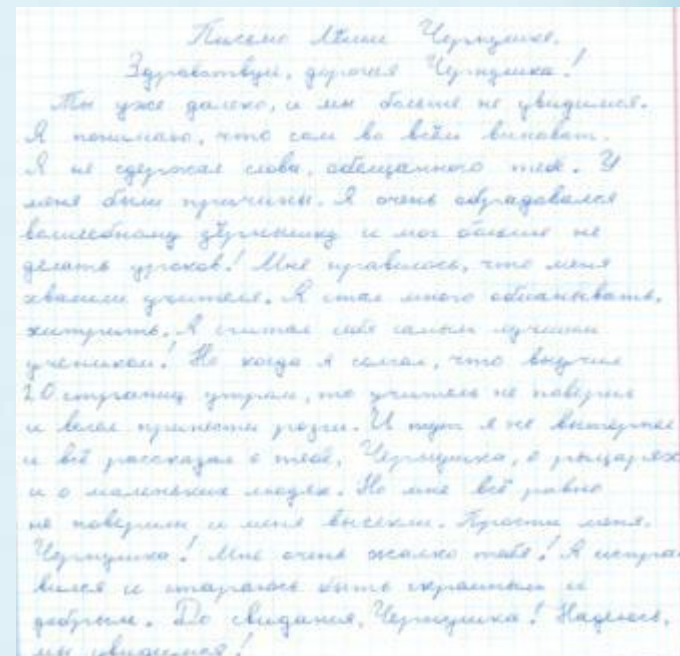 Письмо Алёши Чернушке.
Здравствуй, дорогая Чернушка!
Ты уже далеко, и мы больше не увидимся.
Я понимаю, что сам во всём виноват.
Я не сдержал слова, обещанного тебе. У
меня были причины. Я очень обрадовался
волшебному зёрнышку и мог больше не
делать уроков! Мне нравилось, что меня
хвалили учителя. Я стал много обманывать,
хитрить. Я считал себя самым лучшим
учеником! Но когда я солгал, что выучил
20 страниц утром, то учитель не поверил
и велел принести розги. И тут я не вытерпел
и всё рассказал о тебе, Чернушка, о рыцарях
и о маленьких людях. Но мне всё равно
не поверили и меня высекли. Прости меня,
Чернушка! Мне очень жалко тебя! Я испра-
вился и стараюсь быть скромным и
добрым. До свидания, Чернушка! Надеюсь,
мы увидимся!